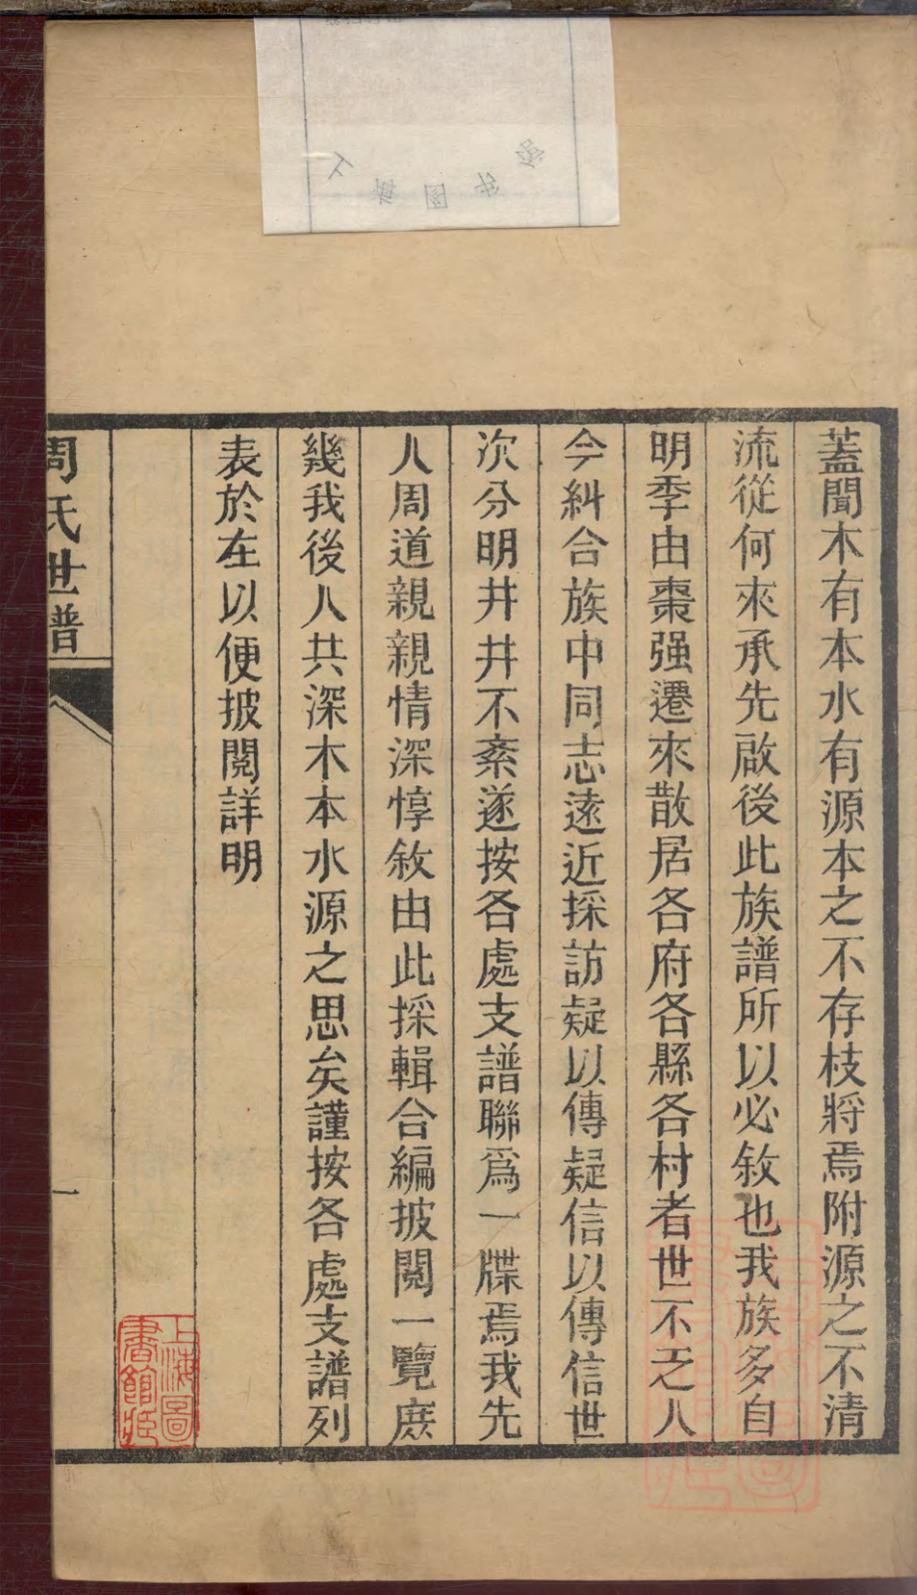 蓋聞木有本水有源本之不存枝將焉附源之不清
流從何來承先啟後此族譜所以必敘也我族多自
明季由棗强遷來散居各府各縣各村者世不乏人
今糾合族中同志遠近採訪疑以傳疑信以傳信世
次分明井井不紊遂按各處支譜聯爲一牒焉我先
人周道親親情深惇敘由此採輯合編披閱一覽庶
幾我後人共深木本水源之思矣謹按各處支譜列
表於左以便披閱詳明
周氏世譜
一
上海圖
書館藏